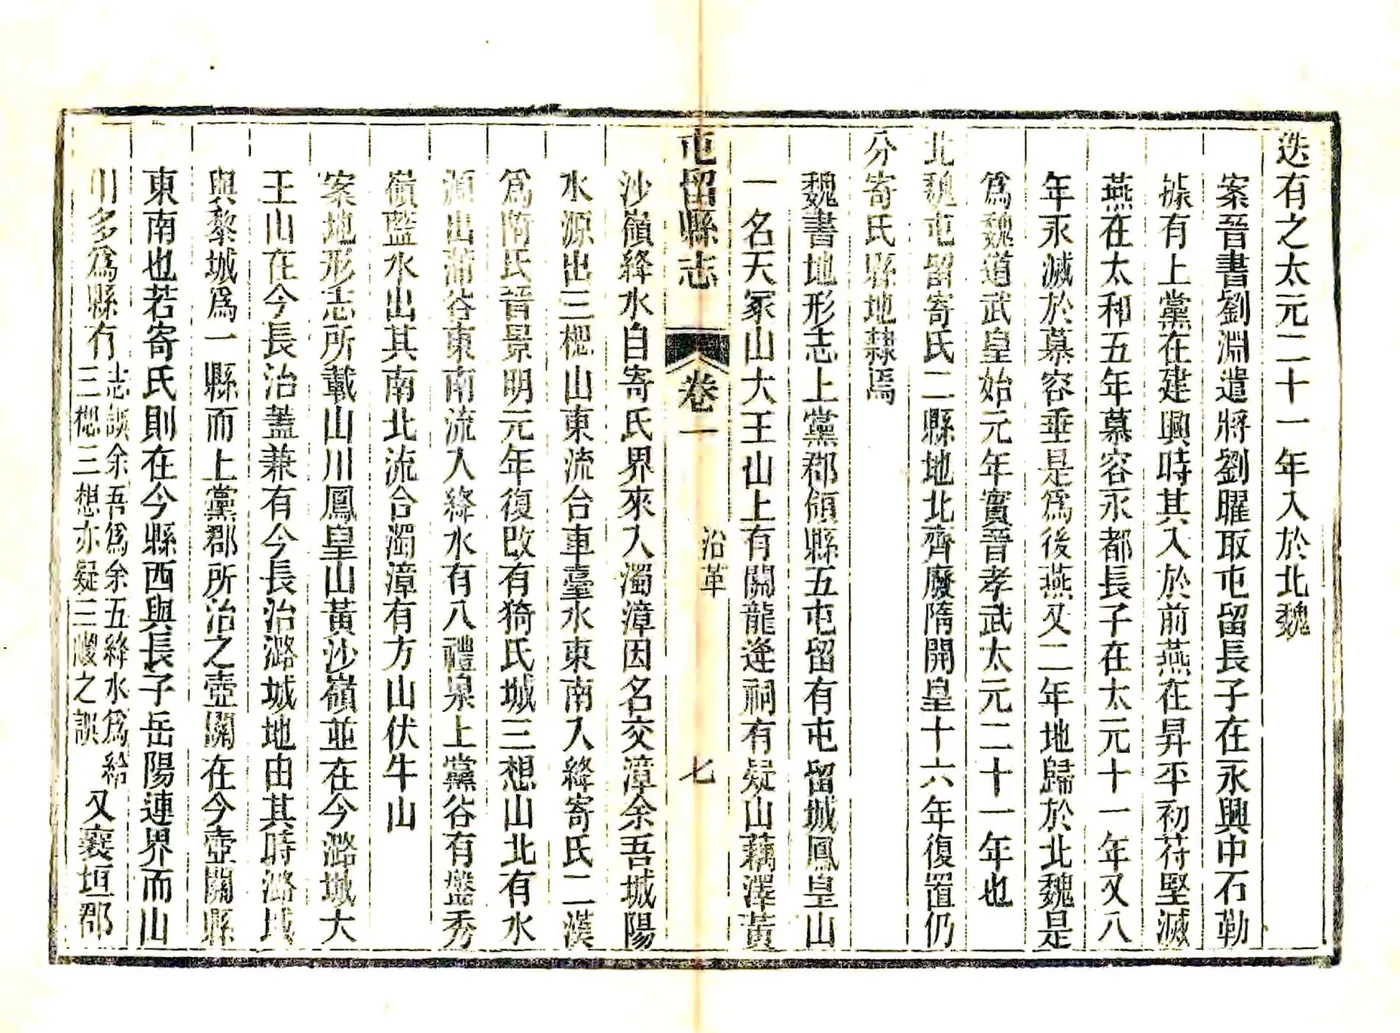 迭有之太元二十一年入於北魏
案晉書劉淵遣將劉曜取屯留長子在永興中石勒
據有上黨在建興時其入於前燕在昇平初苻堅滅
燕在太和五年慕容永都長子在太元十一年又八
年永滅於慕容垂是爲後燕又二年地歸於北魏是
爲魏道武皇始元年實晉孝武太元二十一年也
北魏屯留寄氏二縣地北齊廢隋開皇十六年復置仍
分寄氏縣地隸焉
魏書地形志上黨郡領縣五屯留有屯留城鳳皇山
一名天冢山大王山上有關龍逄祠有疑山藕澤黃
屯留縣志
卷一
沿革
七
沙嶺絳水自寄氏界來入濁漳因名交漳余吾城陽
水源出三㟂山東流合車臺水東南入絳寄氏二漢
爲陭氏晉景明元年復改有猗氏城三想山北有水
源出蒲谷東南流入絳水有八禮泉上黨谷有盤秀
嶺藍水出其南北流合濁漳有方山伏牛山
案地形志所載山川鳳皇山黃沙嶺並在今潞城大
王山在今長治蓋兼有今長治潞城地由其時潞城
與黎城爲一縣而上黨郡所治之壺關在今壺關縣
東南也若寄氏則在今縣西與長子岳陽連界而山
川多爲縣有
志誤余吾爲余五絳水爲給
三㟂三想亦疑三嵕之誤
又襄垣郡